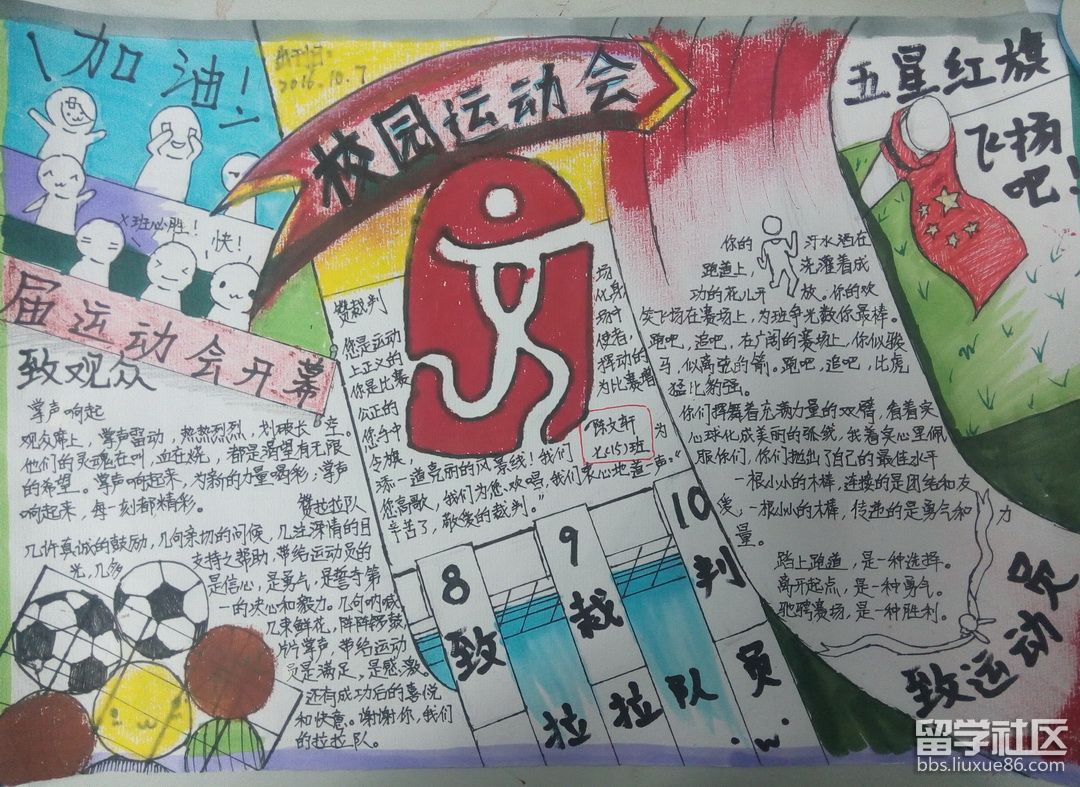 加油！
2016.10.7
校园运动会
五星红旗
飞扬
吧！
X班必胜！
快！
届运动会开幕
致观众
掌声响起
观众席上，掌声雷动，热热烈烈，划破长空。
他们的灵魂在叫，血在烧，都是渴望有无限
的希望。掌声响起来，为新的力量喝彩；掌声
响起来，每一刻都精彩。
赞拉拉队
几许真诚的鼓励，几何亲切的问候，几注深情的目
光，几多
支持之帮助，带给运动员的
是信心，是勇气，是誓夺第
一的决心和毅力。几何呐喊，
几束鲜花，阵阵锣鼓，
片片掌声，带给运动
员是满足，是感激。
还有成功后的喜悦
和快意。谢谢你，我们
的拉拉队。
赞裁判
您是运动场
上正义的化身
你是比赛场中
公正的使者，
您手中挥动的
令旗，为比赛增
添一道亮丽的风景线！我们为
您高歌，我们为您欢唱，我们衷心地道一声：“
辛苦了，敬爱的裁判。”
陈文轩
七(15)班
8
9
10
致
裁
判
员
拉拉队
你的汗水洒在
跑道上，浇灌着成
功的花儿开放。你的欢
笑飞扬在赛场上，为班争光数你最棒。
跑吧，追吧，在广阔的赛场上，你似骏
马，似离弦的箭。跑吧，追吧，比虎
猛比豹强。
你们挥舞着充满力量的双臂，看着实
心球化成美丽的弧线，我着实心里佩
服你们，你们抛出了自己的最佳水平
一根小小的木棒，连接的是团结和友
爱，一根小小的木棒，传递的是勇气和力
量。
踏上跑道，是一种选择。
离开起点，是一种勇气。
驰骋赛场，是一种胜利。
致运动员
留学社区
bbs.liuxue86.com